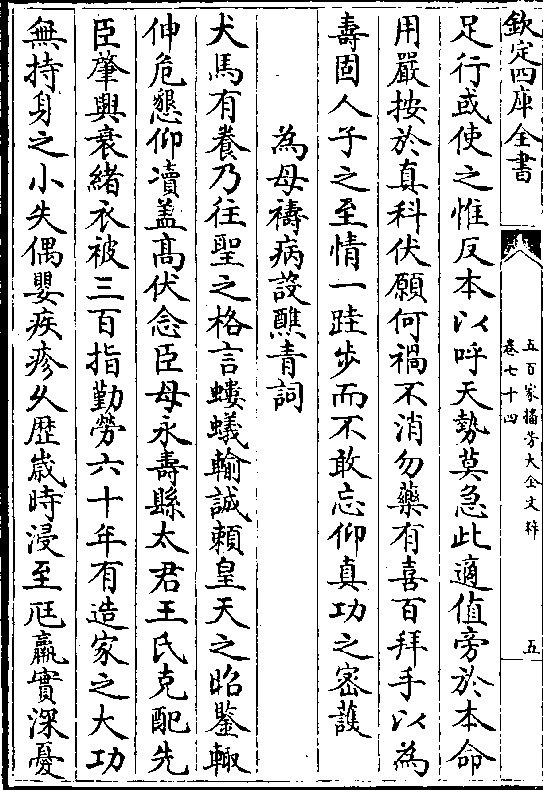 欽定四庫全書
五百家播芳大全文粹
卷七十四
五
足行或使之惟反本以呼天勢莫急此適值旁於本命
用嚴按於真科伏願何禍不消勿藥有喜百拜手以為
壽固人子之至情一跬步而不敢忘仰真功之密護
為母禱病設醮青詞
犬馬有養乃往聖之格言螻蟻輸誠賴皇天之昭鑒輙
伸危懇仰凟盖髙伏念臣母永壽縣太君王氏克配先
臣肇興衰緒衣被三百指勤勞六十年有造家之大功
無持身之小失偶嬰疾疹久歴嵗時浸至尫羸實深憂